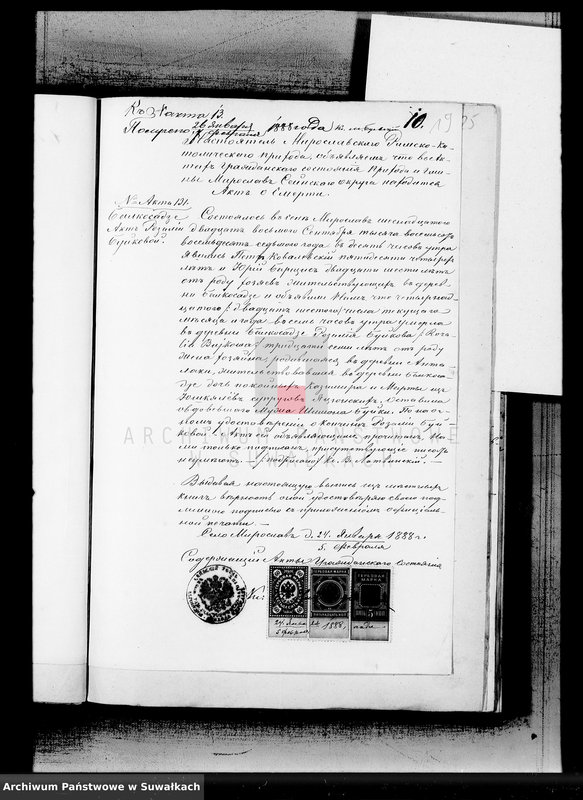 Къ № акта 13.
Получено 26 Января 1888 года
7 Февраля
10.
1935
Настоятель Мирославскаго Римско-Ка-
толическаго прихода, объявляетъ что въ ак-
тахъ Гражданскаго состоянія прихода и гми-
ны Мирославъ Сейнскаго округа находится
Актъ о Смерти.
№ Акта 131.
Бялкосадзе
Актъ Розаліи
Буйковой.
Состоялось въ селѣ Мирославъ шестнадцатаго
двадцать восьмого Сентября тысяча восемьсотъ
восемьдесятъ седьмого года въ десять часовъ утра
явились Петръ Ковалевскій пятидесяти четырехъ
лѣтъ и Юрій двадцати шести лѣтъ
отъ роду хозяева жительствующіе въ дерев-
нѣ Бялкосадзе и объявили Намъ что четырнад-
цатаго / двадцать шестого / числа текущаго
мѣсяца и года въ семь часовъ утра умерла
въ деревнѣ Бялкосадзе Розалія Буйкова
тридцати семи лѣтъ отъ роду
жена хозяина родившаяся въ деревнѣ
жительствовавшая въ деревнѣ Бялкоса-
дзе дочь покойныхъ Казимира и Марты изъ
супруговъ оставивъ
овдовѣвшаго Мужа Шимона Буйку. По наоч-
номъ удостовѣреніи о кончинѣ Розаліи Буй-
ковой Актъ сей объявляющимъ прочитанъ, На-
ми только подписанъ, присутствующіе писать
неумѣютъ. / подписалъ / Кс. В. Матвинскій. —
Выдавая настоящую выпись изъ метриче.
книгъ вѣрность оной удостовѣряю своею под-
писью съ приложеніемъ оффиціаль-
ной печати. —
Село Мирославъ д. 24. Января 1888 г.
5. Февраля
Содержащій Акты Гражданскаго Состоянія
Кс.
ГЕРБОВАЯ МАРКА
ГЕРБОВАЯ МАРКА
5 КОП
24 Янв.
5 Февр.
1888.
года
ARCHIWUM PAŃSTWOWE
Archiwum Państwowe w Suwałkach